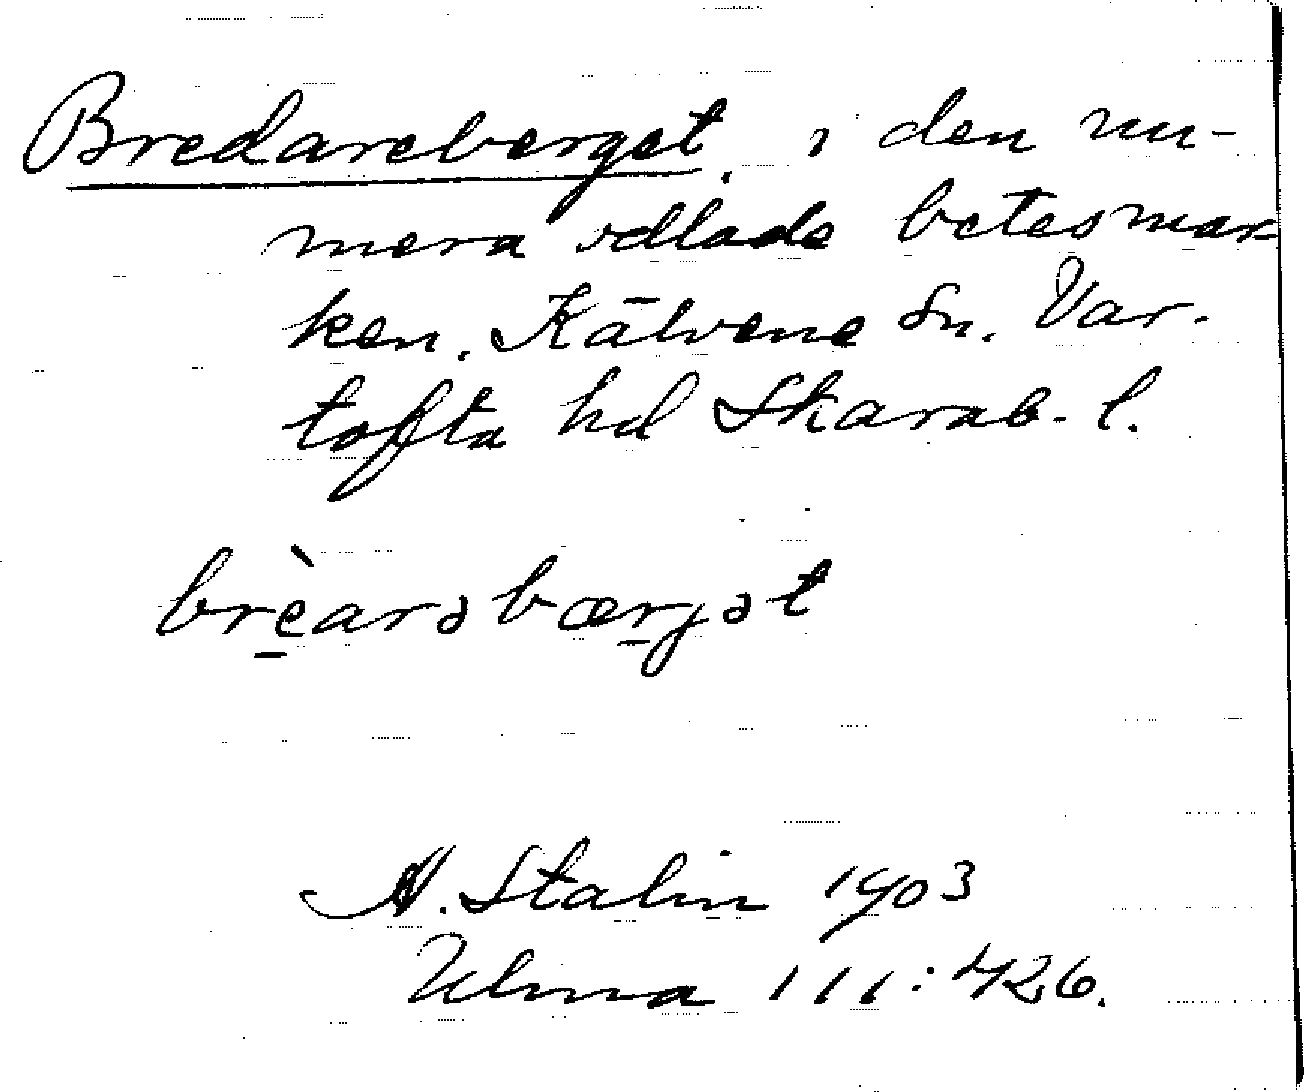 Bredareberget, i den nu-
mera odlade betesmar-
ken. Kälvene sn. Var-
tofta hd Skarab. l.
brèarəbærjət
A. Stalin 1903
Ulma 111:426.